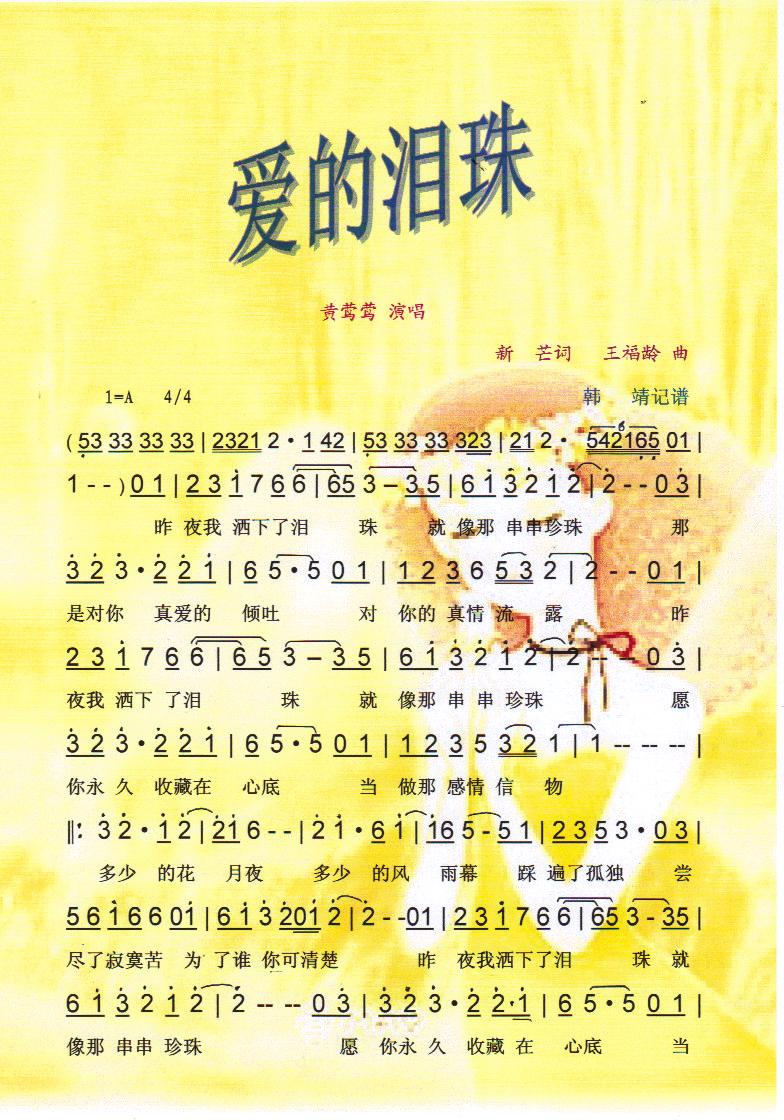 爱的泪珠
黄莺莺 演唱
新 芒词 王福龄 曲
1=A 4/4 韩 靖记谱
( 53 33 33 33 | 2321 2 · 1 42 | 53 33 33 323 | 21 2 · 542165 01 |
1 - - ) 0 1 | 2 3 1 7 6 6 | 65 3 – 3 5 | 6 1 3 2 1 2 | 2 - - 0 3 |
昨 夜我 洒下了泪 珠 就 像那 串串珍珠 那
3 2 3 · 2 2 1 | 6 5 · 5 0 1 | 1 2 3 6 5 3 2 | 2 - - 0 1 |
是对你 真爱的 倾吐 对 你的 真情 流 露 昨
2 3 1 7 6 6 | 6 5 3 – 3 5 | 6 1 3 2 1 2 | 2 -- -- 0 3 |
夜我 洒下 了泪 珠 就 像那 串 串 珍珠 愿
3 2 3 · 2 2 1 | 6 5 · 5 0 1 | 1 2 3 5 3 2 1 | 1 -- -- -- |
你永 久 收藏在 心底 当 做那 感情 信 物
‖: 3 2 · 1 2 | 21 6 - - | 2 1 · 6 1 | 16 5 - 5 1 | 2 3 5 3 · 0 3 |
多少 的花 月夜 多少 的风 雨幕 踩 遍了孤独 尝
5 6 1 6 6 01 | 6 1 3 201 2 | 2 - -01 | 2 3 1 7 6 6 | 65 3 - 35 |
尽了寂寞苦 为 了谁 你可清楚 昨 夜我洒下了泪 珠 就
6 1 3 2 1 2 | 2 -- -- 0 3 | 3 2 3 · 2 2·1 | 6 5 · 5 0 1 |
像那 串串 珍珠 愿 你永 久 收藏 在 心底 当